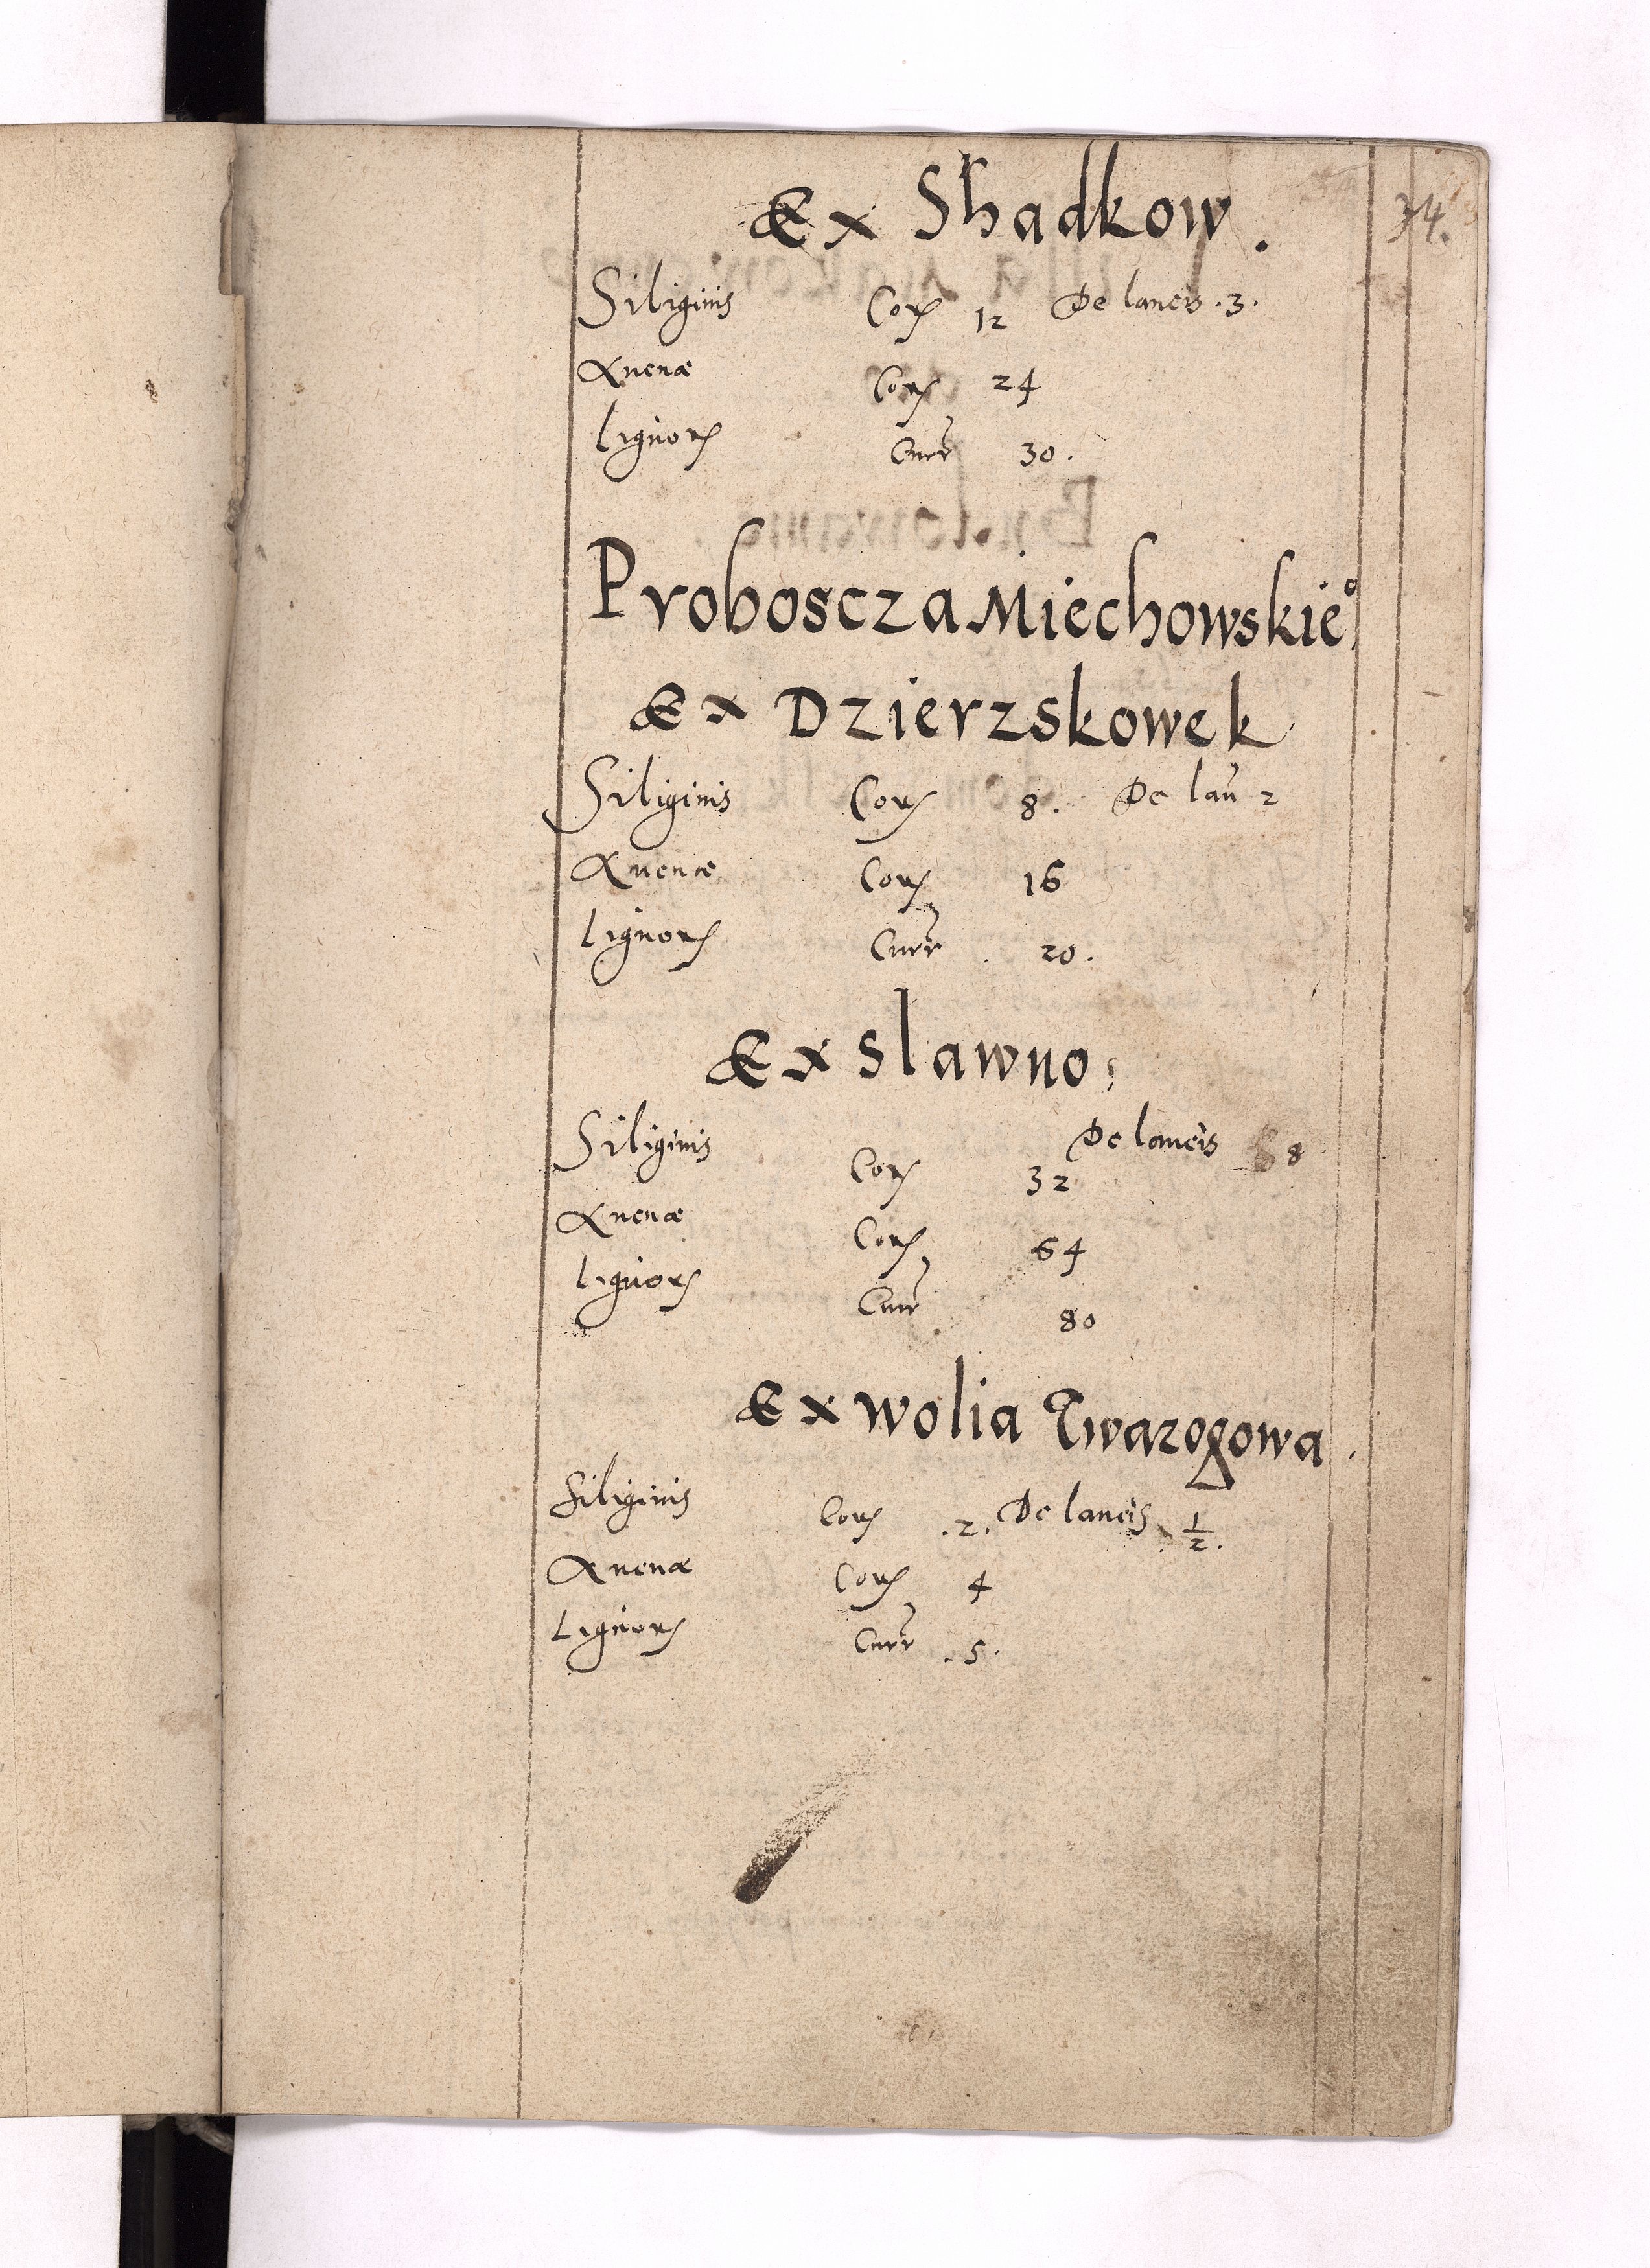 34.
Ex Shadkow.
Siliginis Coꝝ 12 De laneis .3.
Auenæ Coꝝ 24
Lignoꝝ Curr 30.
Proboscza Miechowskieº
Ex Dzierzskowek
Siliginis Coꝝ 8. De lan̄ 2
Auenæ Coꝝ 16
Lignoꝝ Curr 20.
Ex Slawno.
Siliginis Coꝝ 32 De laneis 8
Auenæ Coꝝ 64
Lignoꝝ Curr 80
Ex Wolia Twarogowa.
Siliginis Coꝝ .2. De laneis 1/2.
Auenæ Coꝝ 4
Lignoꝝ Curr .5.